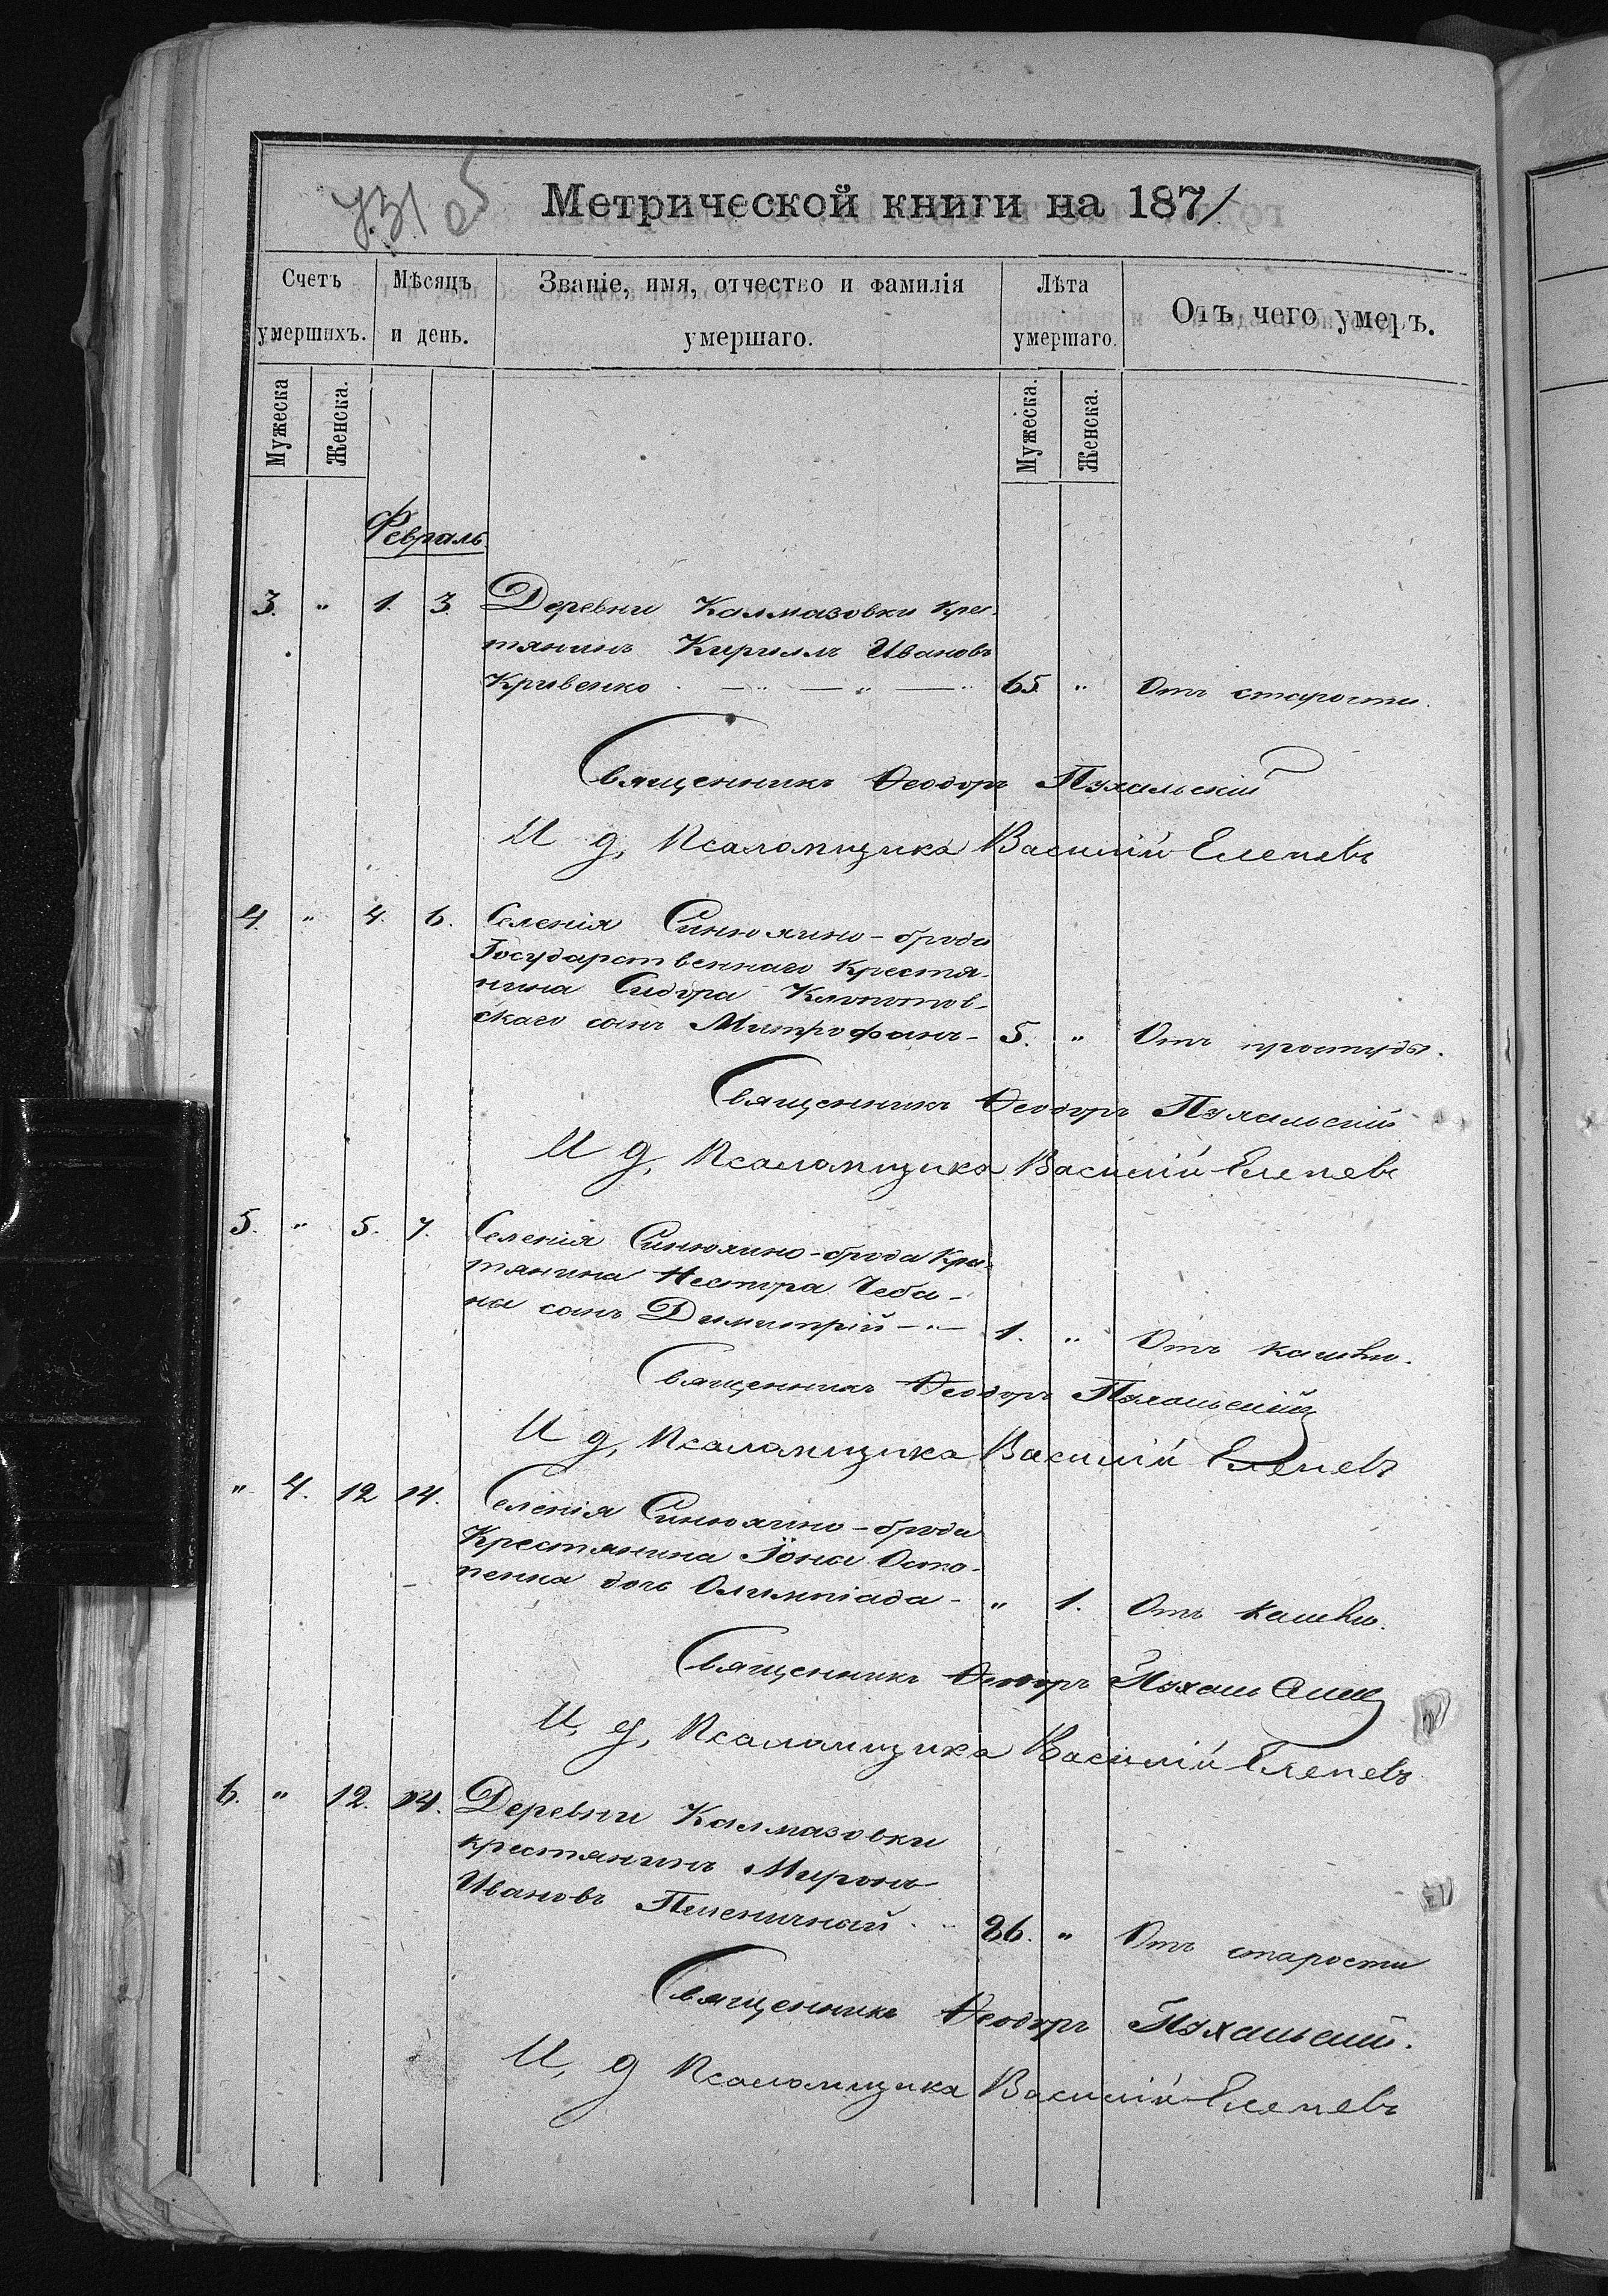 731 об
Метрической книги на 1871
Счетъ умершихъ.
Мѣсяцъ и день.
Званіе, имя, отчество и фамилія умершаго.
Лѣта умершаго.
Отъ чего умеръ.
Мужеска
Женска.
Мужеска.
Женска.
Февраль.
3. " 1. 3. Деревни Калмазовки крес-
тянинъ Кирилъ Ивановъ
Кривенко . — " — " — " 65 " Отъ старости.
Священникъ Ѳеодоръ Пухальскій
И д, Псаломщика Василій Елепевъ
4. " 4. 6. Селенія Синюхино-брода
Государственнаго Крестя-
нина Сидора Клопотов-
скаго сынъ Митрофанъ - 5. " Отъ простуды.
Священникъ Ѳеодоръ Пухальскій
И д, Псаломщика Василій Елепевъ
5. " 5. 7. Селенія Синюхино-брода Крес-
тянина Нестора Чеба-
на сынъ Димитрій — " — 1. " Отъ кашлю.
Священникъ Ѳеодоръ Пухальскій
И д, Псаломщика Василій Елепевъ
" 4. 12 14. Селенія Синюхино-брода
Крестянина Іона Оста-
пенка дочь Олимпіада - " 1. Отъ кашлю.
Священникъ Ѳеодоръ Пухальскій
И, д, Псаломщика Василій Елепевъ
6. " 12. 14. Деревни Калмазовки
крестянинъ Миронъ
Ивановъ Пшеничный . " 86. " Отъ старости
Священникъ Ѳеодоръ Пухальскій.
И, д Псаломщика Василій Елепевъ